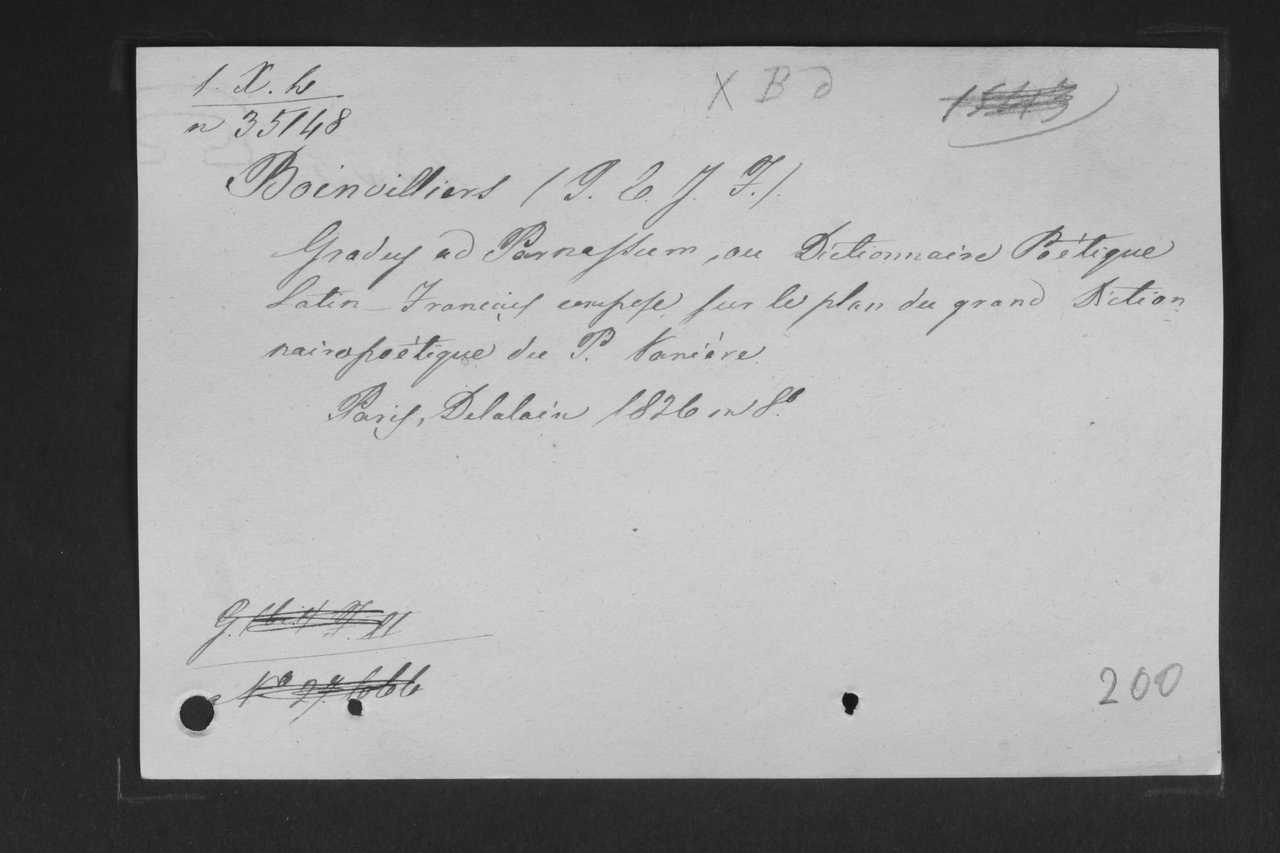 1. X. h
X B d
n 35148
Boinvilliers (P. E. J. F.).
Gradus ad Parnassum, ou Dictionnaire Poétique
Latin-Français composé sur le plan du grand Diction
naire poétique du P. Vanière.
Paris, Delalain 1826 in 8º.
G.
200